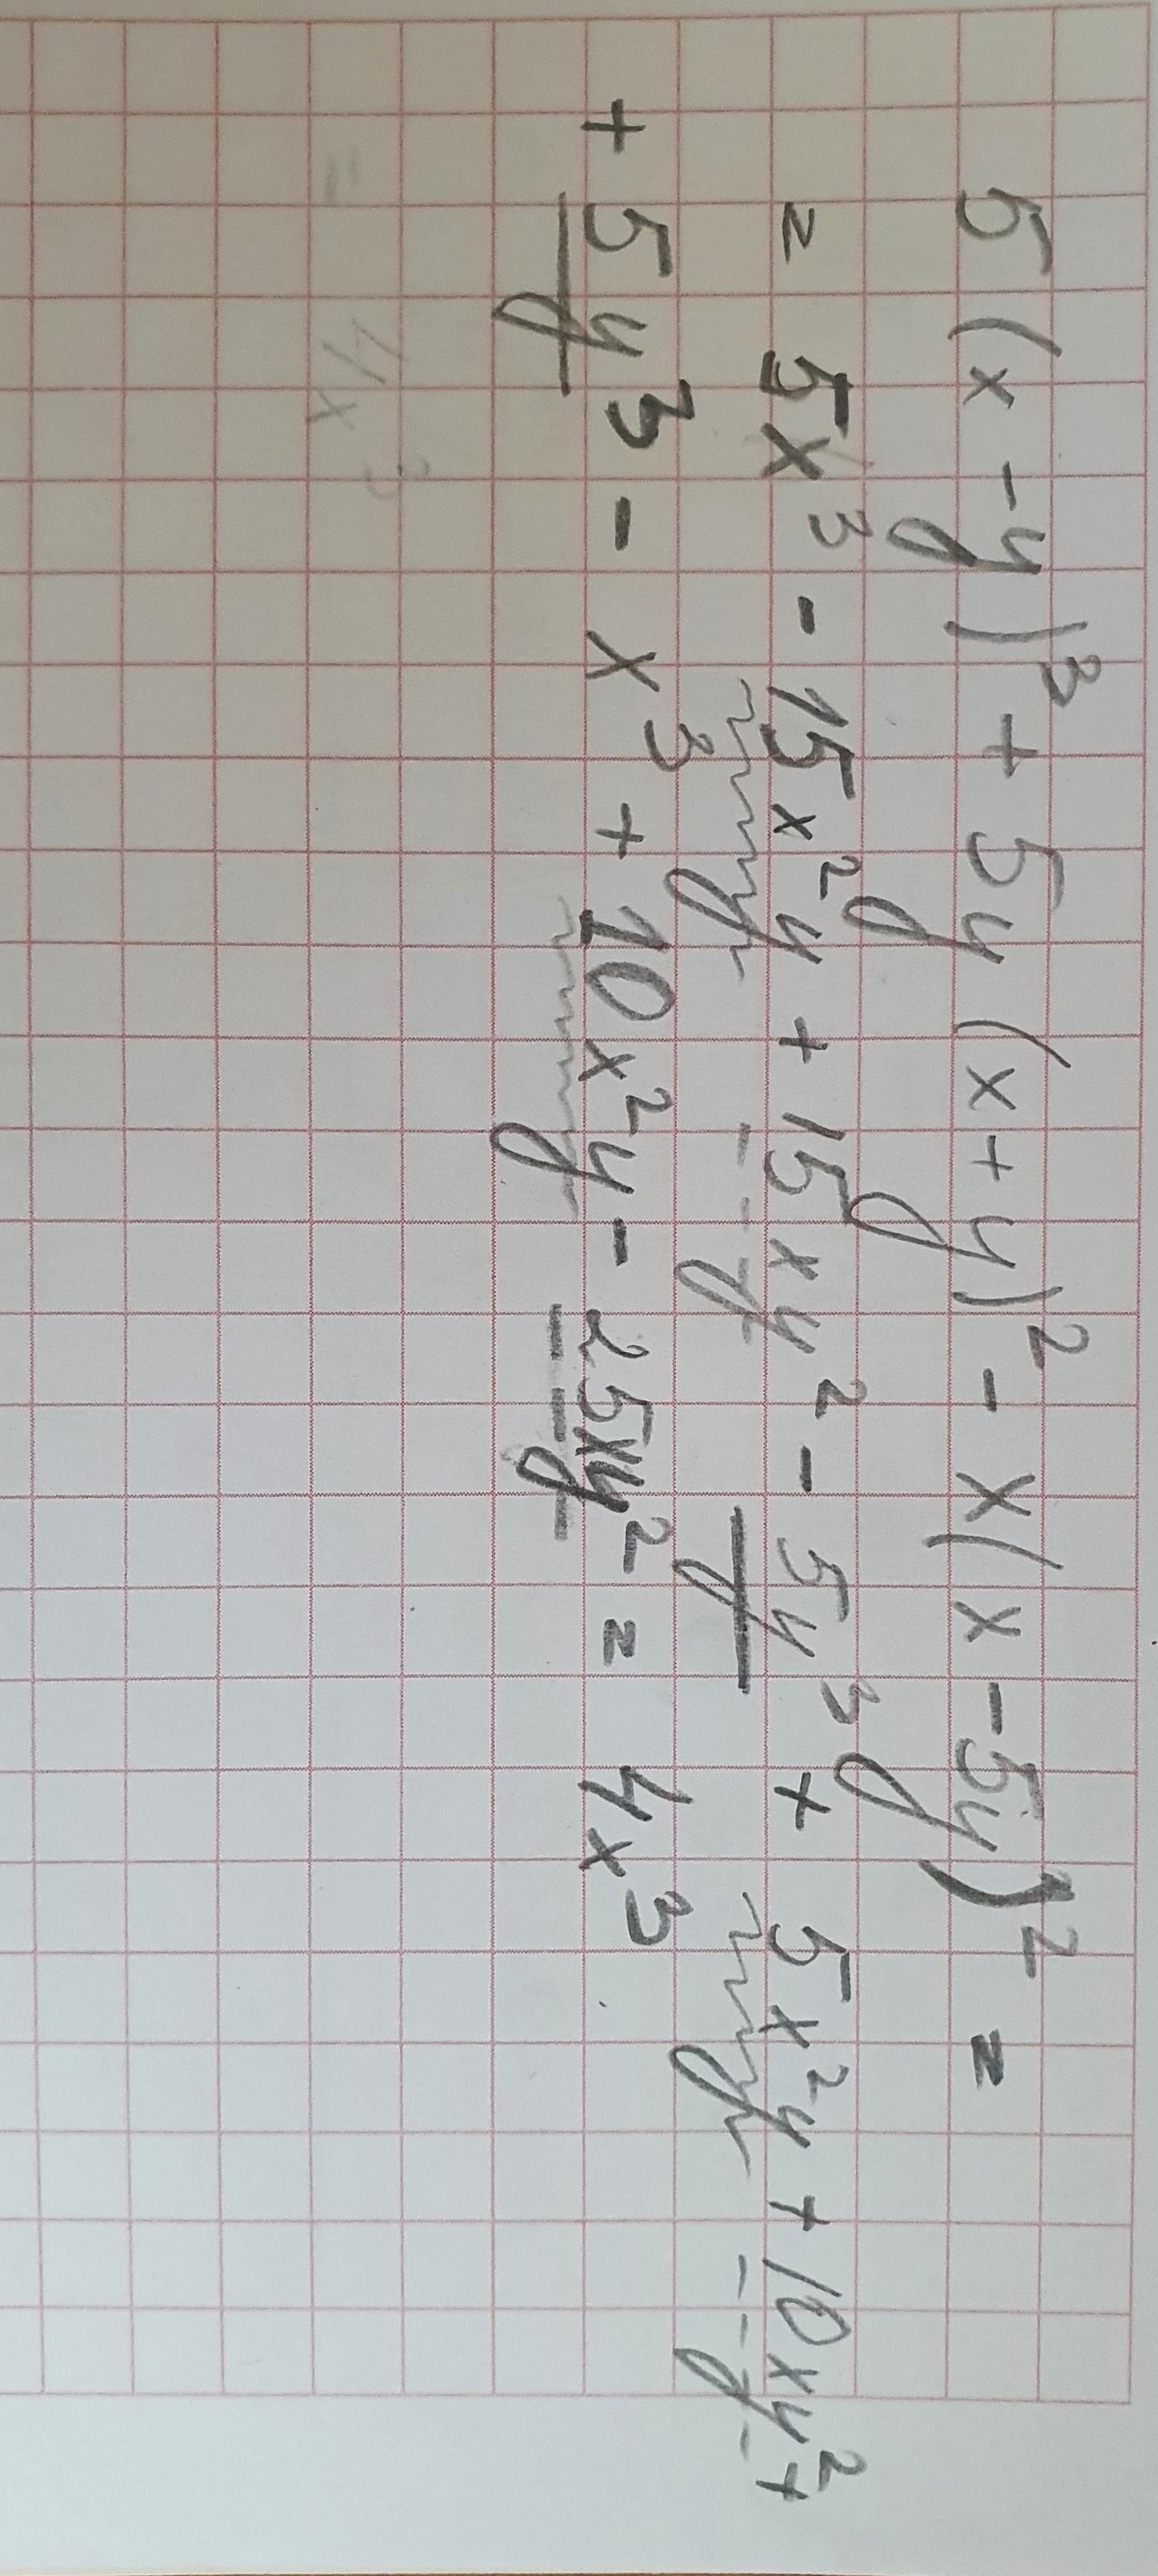 5(x-y)³ + 5y(x+y)² - x(x-5y)² =
= 5x³ - 15x²y + 15xy² - 5y³ + 5x²y + 10xy² +
+ 5y³ - x³ + 10x²y - 25xy² = 4x³
= 4x³